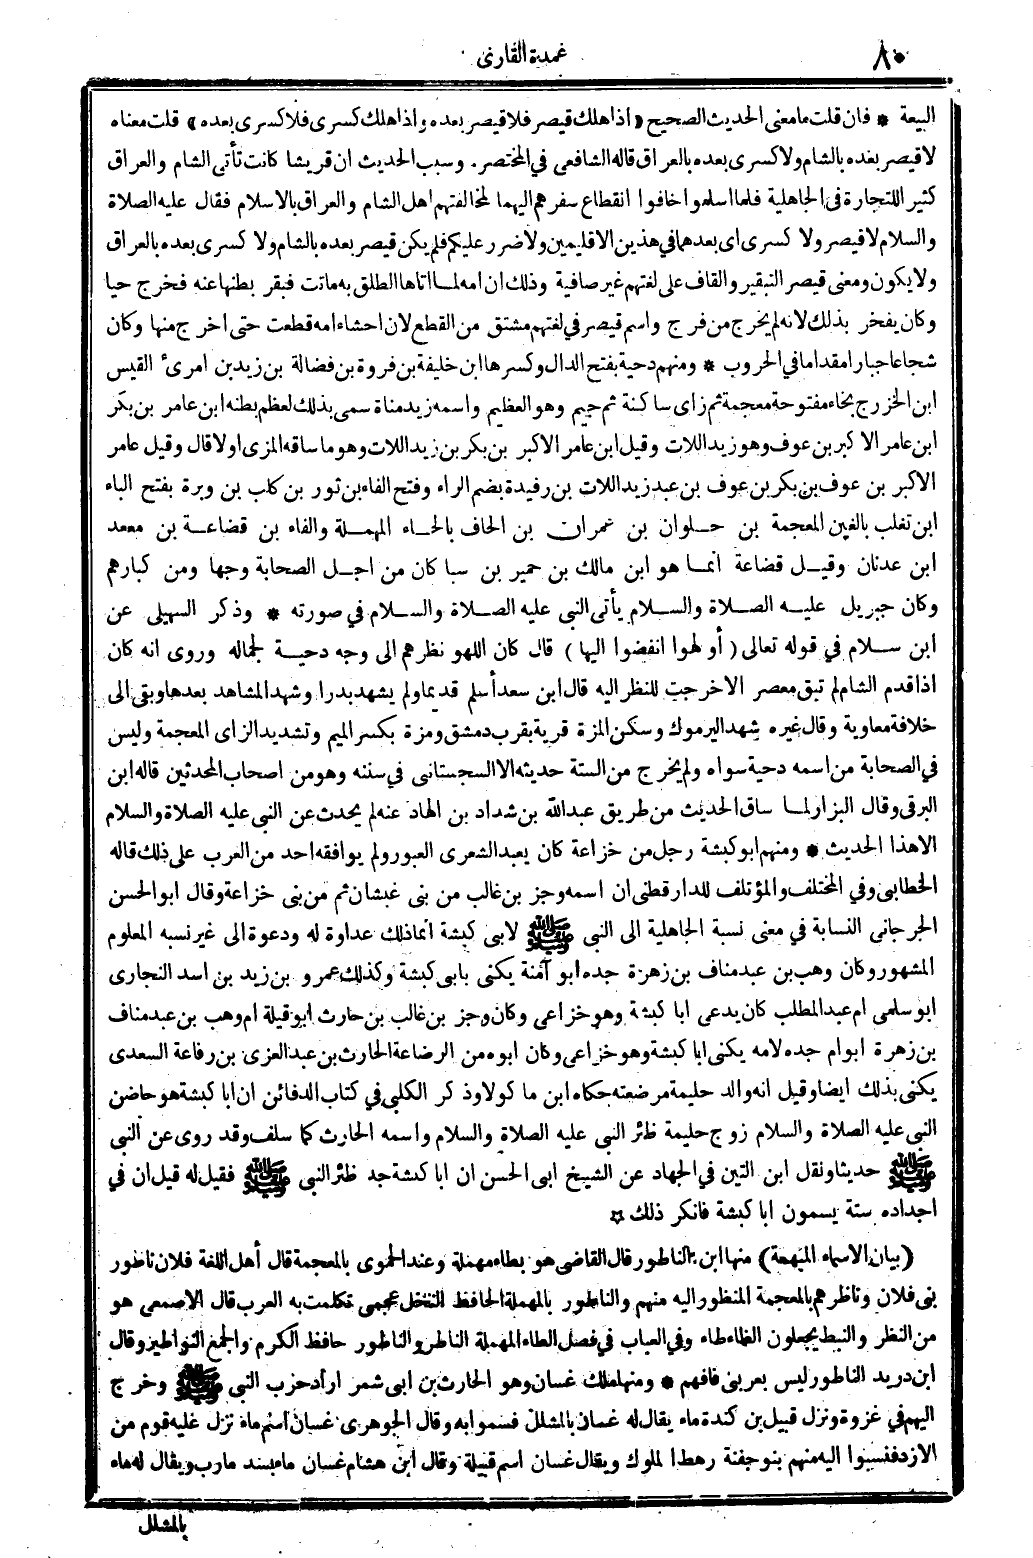 ٨٠
عمدة القارئ
البيعة * فان قلت ما معنى الحديث الصحيح «اذا هلك قيصر فلا قيصر بعده واذا هلك كسرى فلا كسرى بعده» قلت معناه
لا قيصر بعده بالشام ولا كسرى بعده بالعراق قاله الشافعي في المختصر. وسبب الحديث ان قريشا كانت تأتى الشام والعراق
كثيرا للتجارة في الجاهلية فلما اسلموا خافوا انقطاع سفرهم اليهما لمخالفتهم اهل الشام والعراق بالاسلام فقال عليه الصلاة
والسلام لا قيصر ولا كسرى اى بعدهما في هذين الاقليمين ولا ضرر عليكم فلم يكن قيصر بعده بالشام ولا كسرى بعده بالعراق
ولا يكون ومعنى قيصر التبقير والقاف على لغتهم غير صافية وذلك ان امه لما اتاها الطلق به ماتت فبقر بطنها عنه فخرج حيا
وكان يفخر بذلك لانه لم يخرج من فرج واسم قيصر في لغتهم مشتق من القطع لان احشاء امه قطعت حتى اخرج منها وكان
شجاعا جبارا مقداما في الحروب * ومنهم دحية بفتح الدال وكسرها ابن خليفة بن فروة بن فضالة بن زيد بن امرئ القيس
ابن الخزرج بخاء مفتوحة معجمة ثم زاى ساكنة ثم جيم وهو العظيم واسمه زيد مناة سمى بذلك لعظم بطنه ابن عامر بن بكر
ابن عامر الاكبر بن عوف وهو زيد اللات وقيل ابن عامر الاكبر بن بكر بن زيد اللات وهو ما ساقه المزى اولا قال وقيل عامر
الاكبر بن عوف بن بكر بن عوف بن عبد زيد اللات بن رفيدة بضم الراء وفتح الفاء بن ثور بن كلب بن وبرة بفتح الباء
ابن تغلب بالغين المعجمة بن حلوان بن عمران بن الحاف بالحاء المهملة والفاء بن قضاعة بن معد
ابن عدنان وقيل قضاعة انما هو ابن مالك بن حمير بن سبا كان من اجل الصحابة وجها ومن كبارهم
وكان جبريل عليه الصلاة والسلام يأتى النبى عليه الصلاة والسلام في صورته * وذكر السهيلى عن
ابن سلام في قوله تعالى (أو لهوا انفضوا اليها) قال كان اللهو نظرهم الى وجه دحية لجماله وروى انه كان
اذا قدم الشام لم تبق معصر الا خرجت للنظر اليه قال ابن سعد أسلم قديما ولم يشهد بدرا وشهد المشاهد بعدها وبقى الى
خلافة معاوية وقال غيره شهد اليرموك وسكن المزة قرية بقرب دمشق ومزة بكسر الميم وتشديد الزاى المعجمة وليس
في الصحابة من اسمه دحية سواه ولم يخرج من الستة حديثه الا السجستانى في سننه وهو من اصحاب المحدثين قاله ابن
البرقى وقال البزار لما ساق الحديث من طريق عبد الله بن شداد بن الهاد عنه لم يحدث عن النبى عليه الصلاة والسلام
الا هذا الحديث * ومنهم ابو كبشة رجل من خزاعة كان يعبد الشعرى العبور ولم يوافقه احد من العرب على ذلك قاله
الخطابى وفي المختلف والمؤتلف للدارقطنى ان اسمه وجز بن غالب من بنى غبشان ثم من بنى خزاعة وقال ابو الحسن
الجرجانى النسابة في معنى نسبة الجاهلية الى النبى ﷺ لابى كبشة انما ذلك عداوة له ودعوة الى غير نسبه المعلوم
المشهور وكان وهب بن عبد مناف بن زهرة جده ابو آمنة يكنى بابى كبشة وكذلك عمرو بن زيد بن اسد النجارى
ابو سلمى ام عبد المطلب كان يدعى ابا كبشة وهو خزاعى وكان وجز بن غالب بن حارث ابو قيلة ام وهب بن عبد مناف
بن زهرة ابو ام جده لامه يكنى ابا كبشة وهو خزاعى وكان ابوه من الرضاعة الحارث بن عبد العزى بن رفاعة السعدى
يكنى بذلك ايضا وقيل انه والد حليمة مرضعته حكاه ابن ماكولا وذكر الكلبى في كتاب الدفائن ان ابا كبشة هو حاضن
النبى عليه الصلاة والسلام زوج حليمة ظئر النبى عليه الصلاة والسلام واسمه الحارث كما سلف وقد روى عن النبى
ﷺ حديثا ونقل ابن التين في الجهاد عن الشيخ ابى الحسن ان ابا كبشة جد ظئر النبى ﷺ فقيل له قيل ان في
اجداده ستة يسمون ابا كبشة فانكر ذلك ¤
(بيان الاسماء المبهمة) منها ابن الناطور قال القاضى هو بطاء مهملة وعند الحموى بالمعجمة قال أهل اللغة فلان ناطور
بنى فلان وناظرهم بالمعجمة المنظور اليه منهم والناطور بالمهملة الحافظ النخل عجمى تكلمت به العرب قال الاصمعى هو
من النظر والنبط يجعلون الظاء طاء وفي العباب في فصل الطاء المهملة الناطر والناطور حافظ الكرم والجمع النواطير وقال
ابن دريد الناطور ليس بعربى فافهم * ومنها ملك غسان وهو الحارث بن ابى شمر اراد حزب النبى ﷺ وخرج
اليهم في غزوة ونزل قبيل بن كندة ماء يقال له غسان بالمشلل فسموا به وقال الجوهرى غسان اسم ماء نزل عليه قوم من
الازد فنسبوا اليه منهم بنو جفنة رهط الملوك ويقال غسان اسم قبيلة وقال ابن هشام غسان ماء بسد مارب ويقال له ماء
بالمشلل